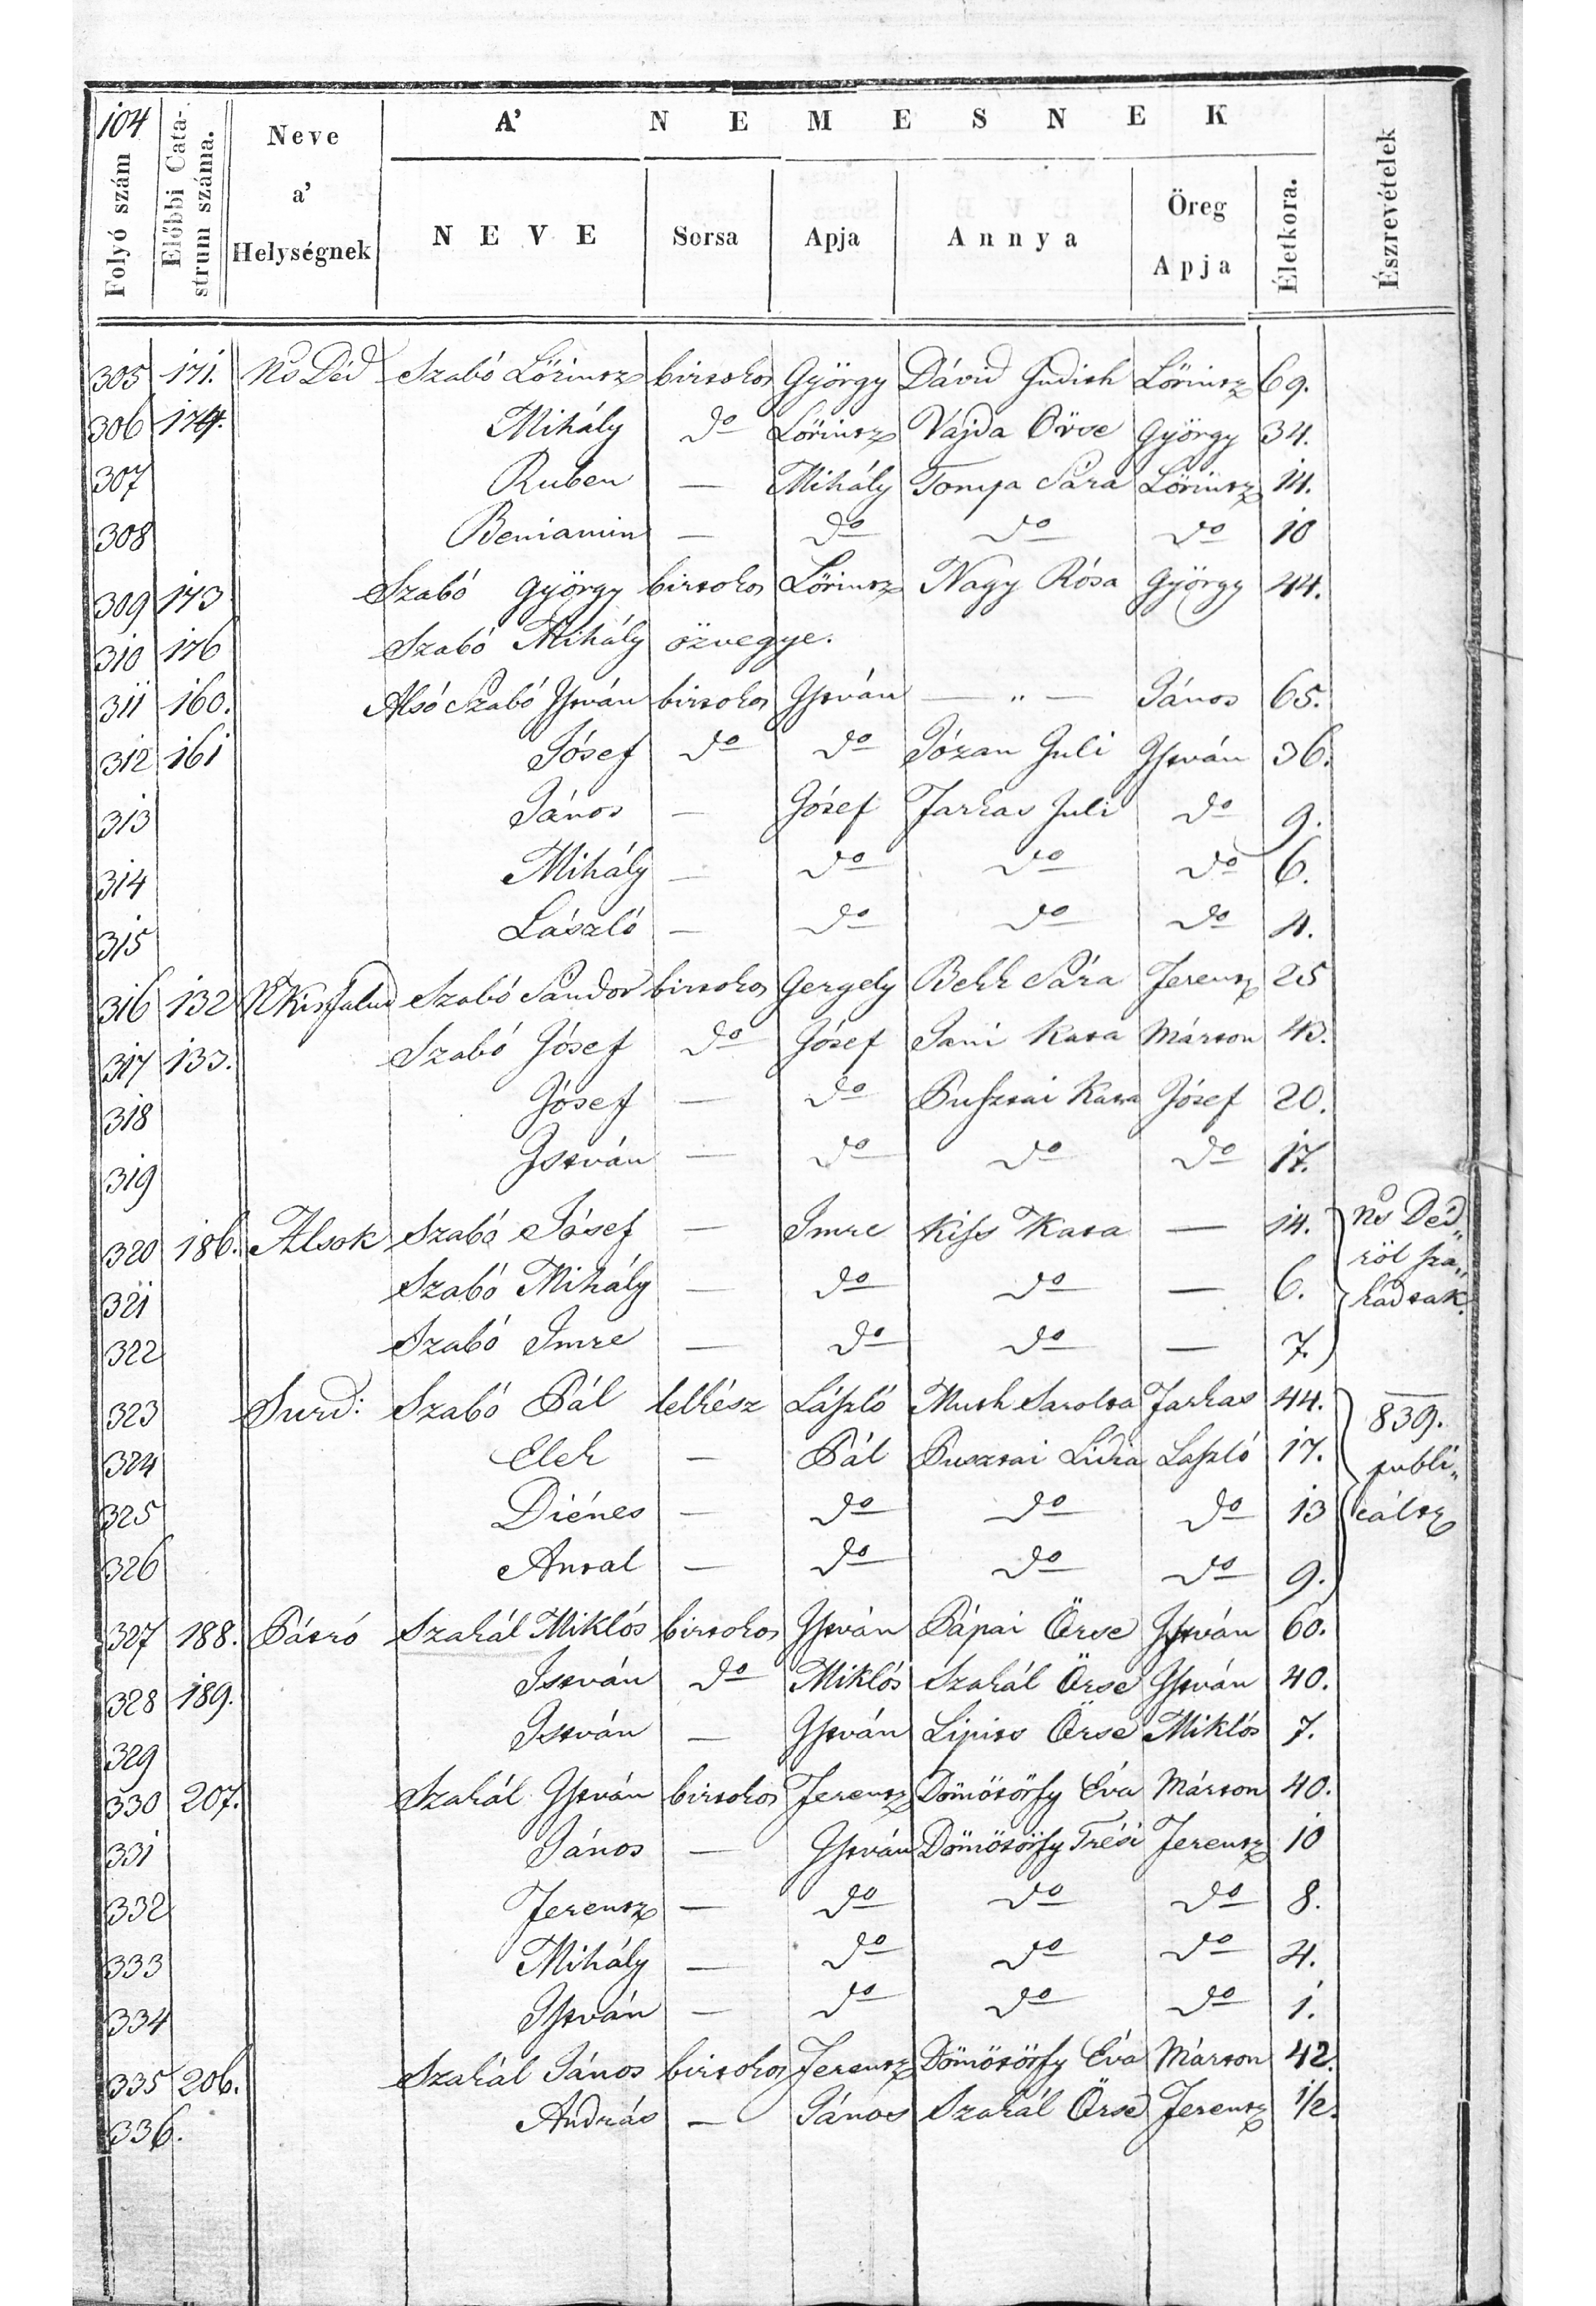 104
Folyó szám
Előbbi Cata-
strum száma.
Neve
a'
Helységnek
A' NEMESNEK
NEVE
Sorsa
Apja
Annya
Öreg
Apja
Életkora.
Észrevételek
305 171. Ns Déd Szabó Lőrintz birtokos György Dávid Judith Lőrintz 69.
306 174. Mihály do Lőrintz Vajda Örse György 34.
307 Ruben — Mihály Tompa Sára Lőrintz 14.
308 Beniamin — do do do 10
309 173 Szabó György birtokos Lőrintz Nagy Rósa György 44.
310 176 Szabó Mihály özvegye.
311 160. Alsó Szabó István birtokos István — " — János 65.
312 161 Jósef do do Józan Juli István 36.
313 János — Jósef Farkas Juli do 9.
314 Mihály — do do do 6.
315 László — do do do 4.
316 132 N Kisfalud Szabó Sándor birtokos Gergely Bekk Sára Ferentz 25
317 133. Szabó Jósef do Jósef Sani Kata Márton 43.
318 Jósef — do Pusztai Kata Jósef 20.
319 István — do do do 17.
320 186. Alsok Szabó Jósef — Imre Kiss Kata — 14. Ns Déd„
321 Szabó Mihály — do do — 6. ről sza„
kadtak.
322 Szabó Imre — do do — 7.
323 Surd: Szabó Pál lelkész László Muth Sarolta Farkas 44. 839.
324 Elek — Pál Pusztai Lidia László 17. publi„
325 Diénes — do do do 13 cáltz
326 Antal — do do do 9.
327 188. Pátró Szakál Miklós birtokos István Pápai Örse István 60.
328 189. István do Miklós Szakál Örse István 40.
329 István — István Lipits Örse Miklós 7.
330 207. Szakál István birtokos Ferentz Dömötörfy Éva Márton 40.
331 János — István Dömötörfy Trési Ferentz 10
332 Ferentz — do do do 8.
333 Mihály — do do do 4.
334 István — do do do 1.
335 206. Szakál János birtokos Ferentz Dömötörfy Éva Márton 42.
336. András — János Szakál Örse Ferentz 1/2.